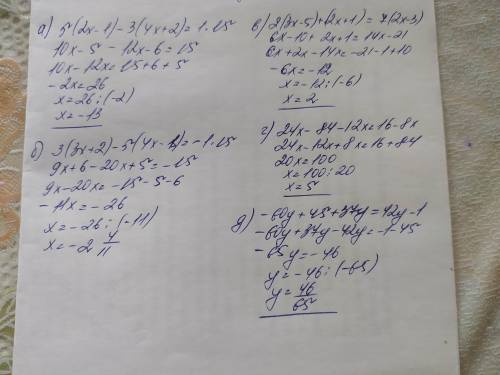 а) 5(2x-1)-3(4x+2)=1·15
10x-5-12x-6=15
10x-12x=15+6+5
-2x=26
x=26:(-2)
x=-13
б) 3(3x+2)-5(4x-1)=-1·15
9x+6-20x+5=-15
9x-20x=-15-5-6
-11x=-26
x=-26:(-11)
x=-2
в) 2(3x-5)+(2x+1)=7(2x-3)
6x-10+2x+1=14x-21
6x+2x-14x=-21-1+10
-6x=-12
x=-12:(-6)
x=2
г) 24x-84-12x=16-8x
24x-12x+8x=16+84
20x=100
x=100:20
x=5
д) -60y+45+37y=42y-1
-60y+37y-42y=-1-45
-65y=-46
y=-46:(-65)
y=46/65